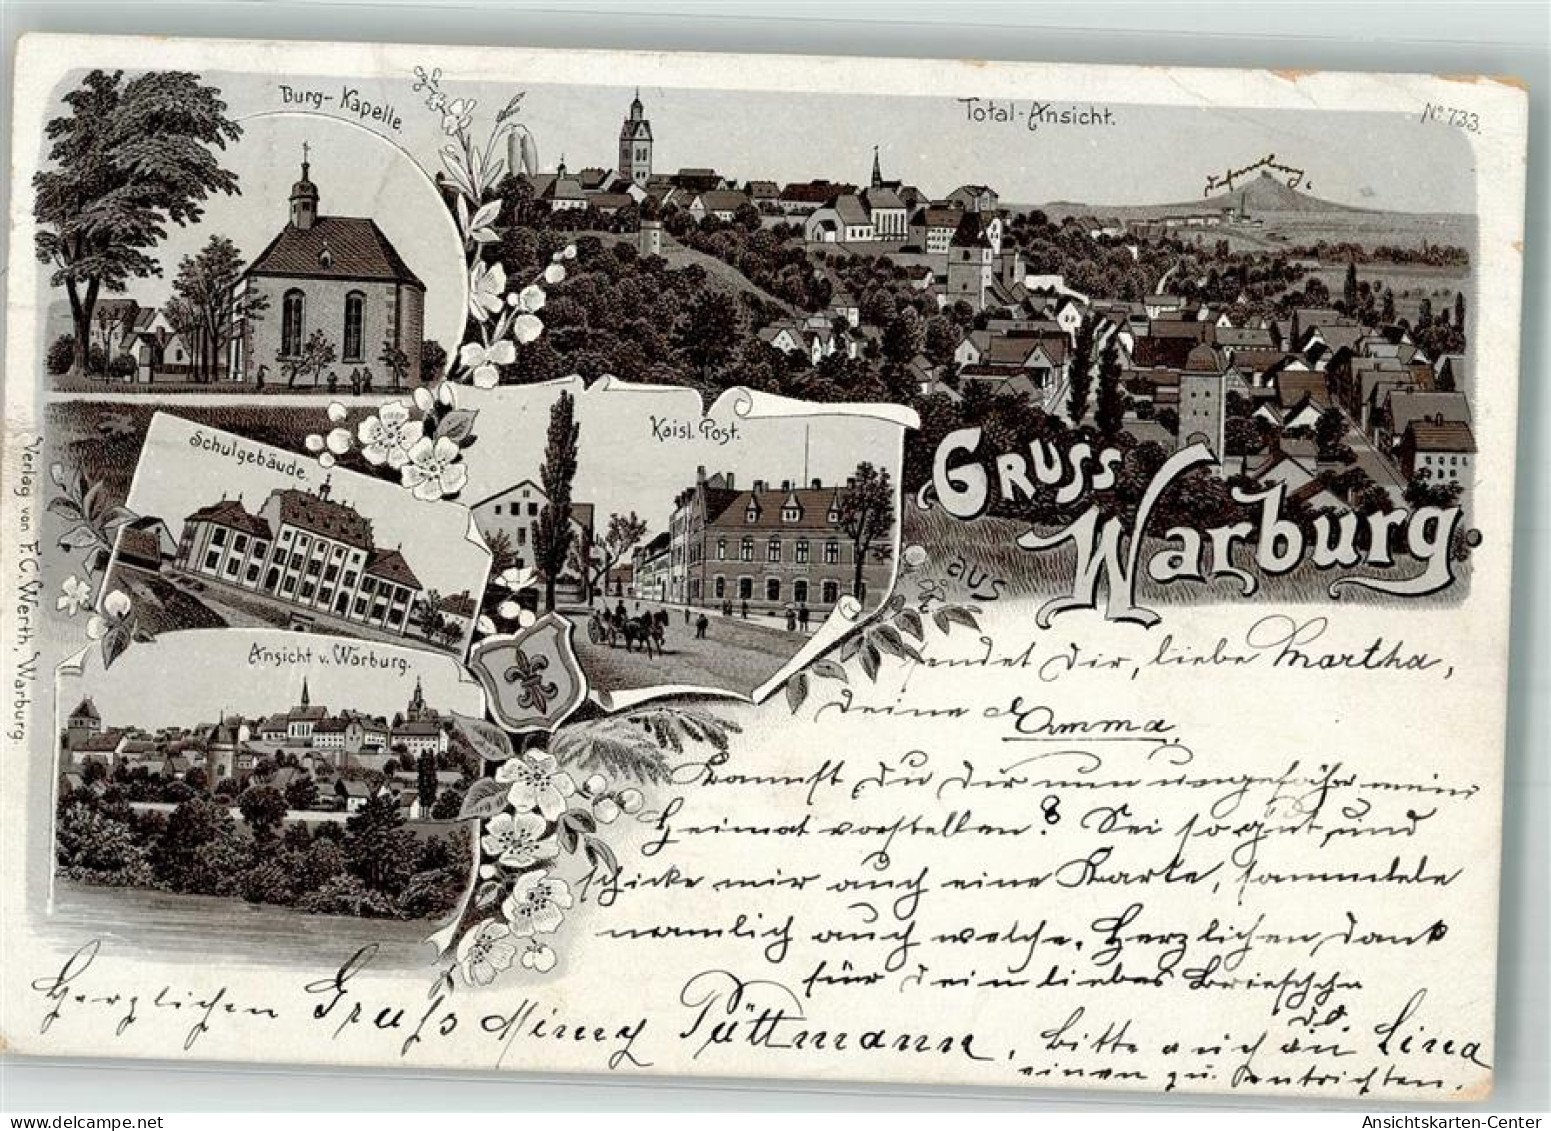 Burg-Kapelle.
Total-Ansicht.
No. 733.
Schulgebäude.
Kaisl. Post.
GRUSS
aus
Warburg.
Ansicht v. Warburg.
Verlag von F. C. Werth, Warburg.
sendet Dir, liebe Martha,
Deine
Kannst Du Dir nun ungefähr meine
Heimat vorstellen? Sei so gut und
schicke mir auch eine Karte, sammele
nämlich auch welche. Herzlichen Dank
für Dein liebes Briefchen
Herzlichen Gruß Minny Püttmann, bitte auch an Lina
einen zu entrichten.
Ansichtskarten-Center